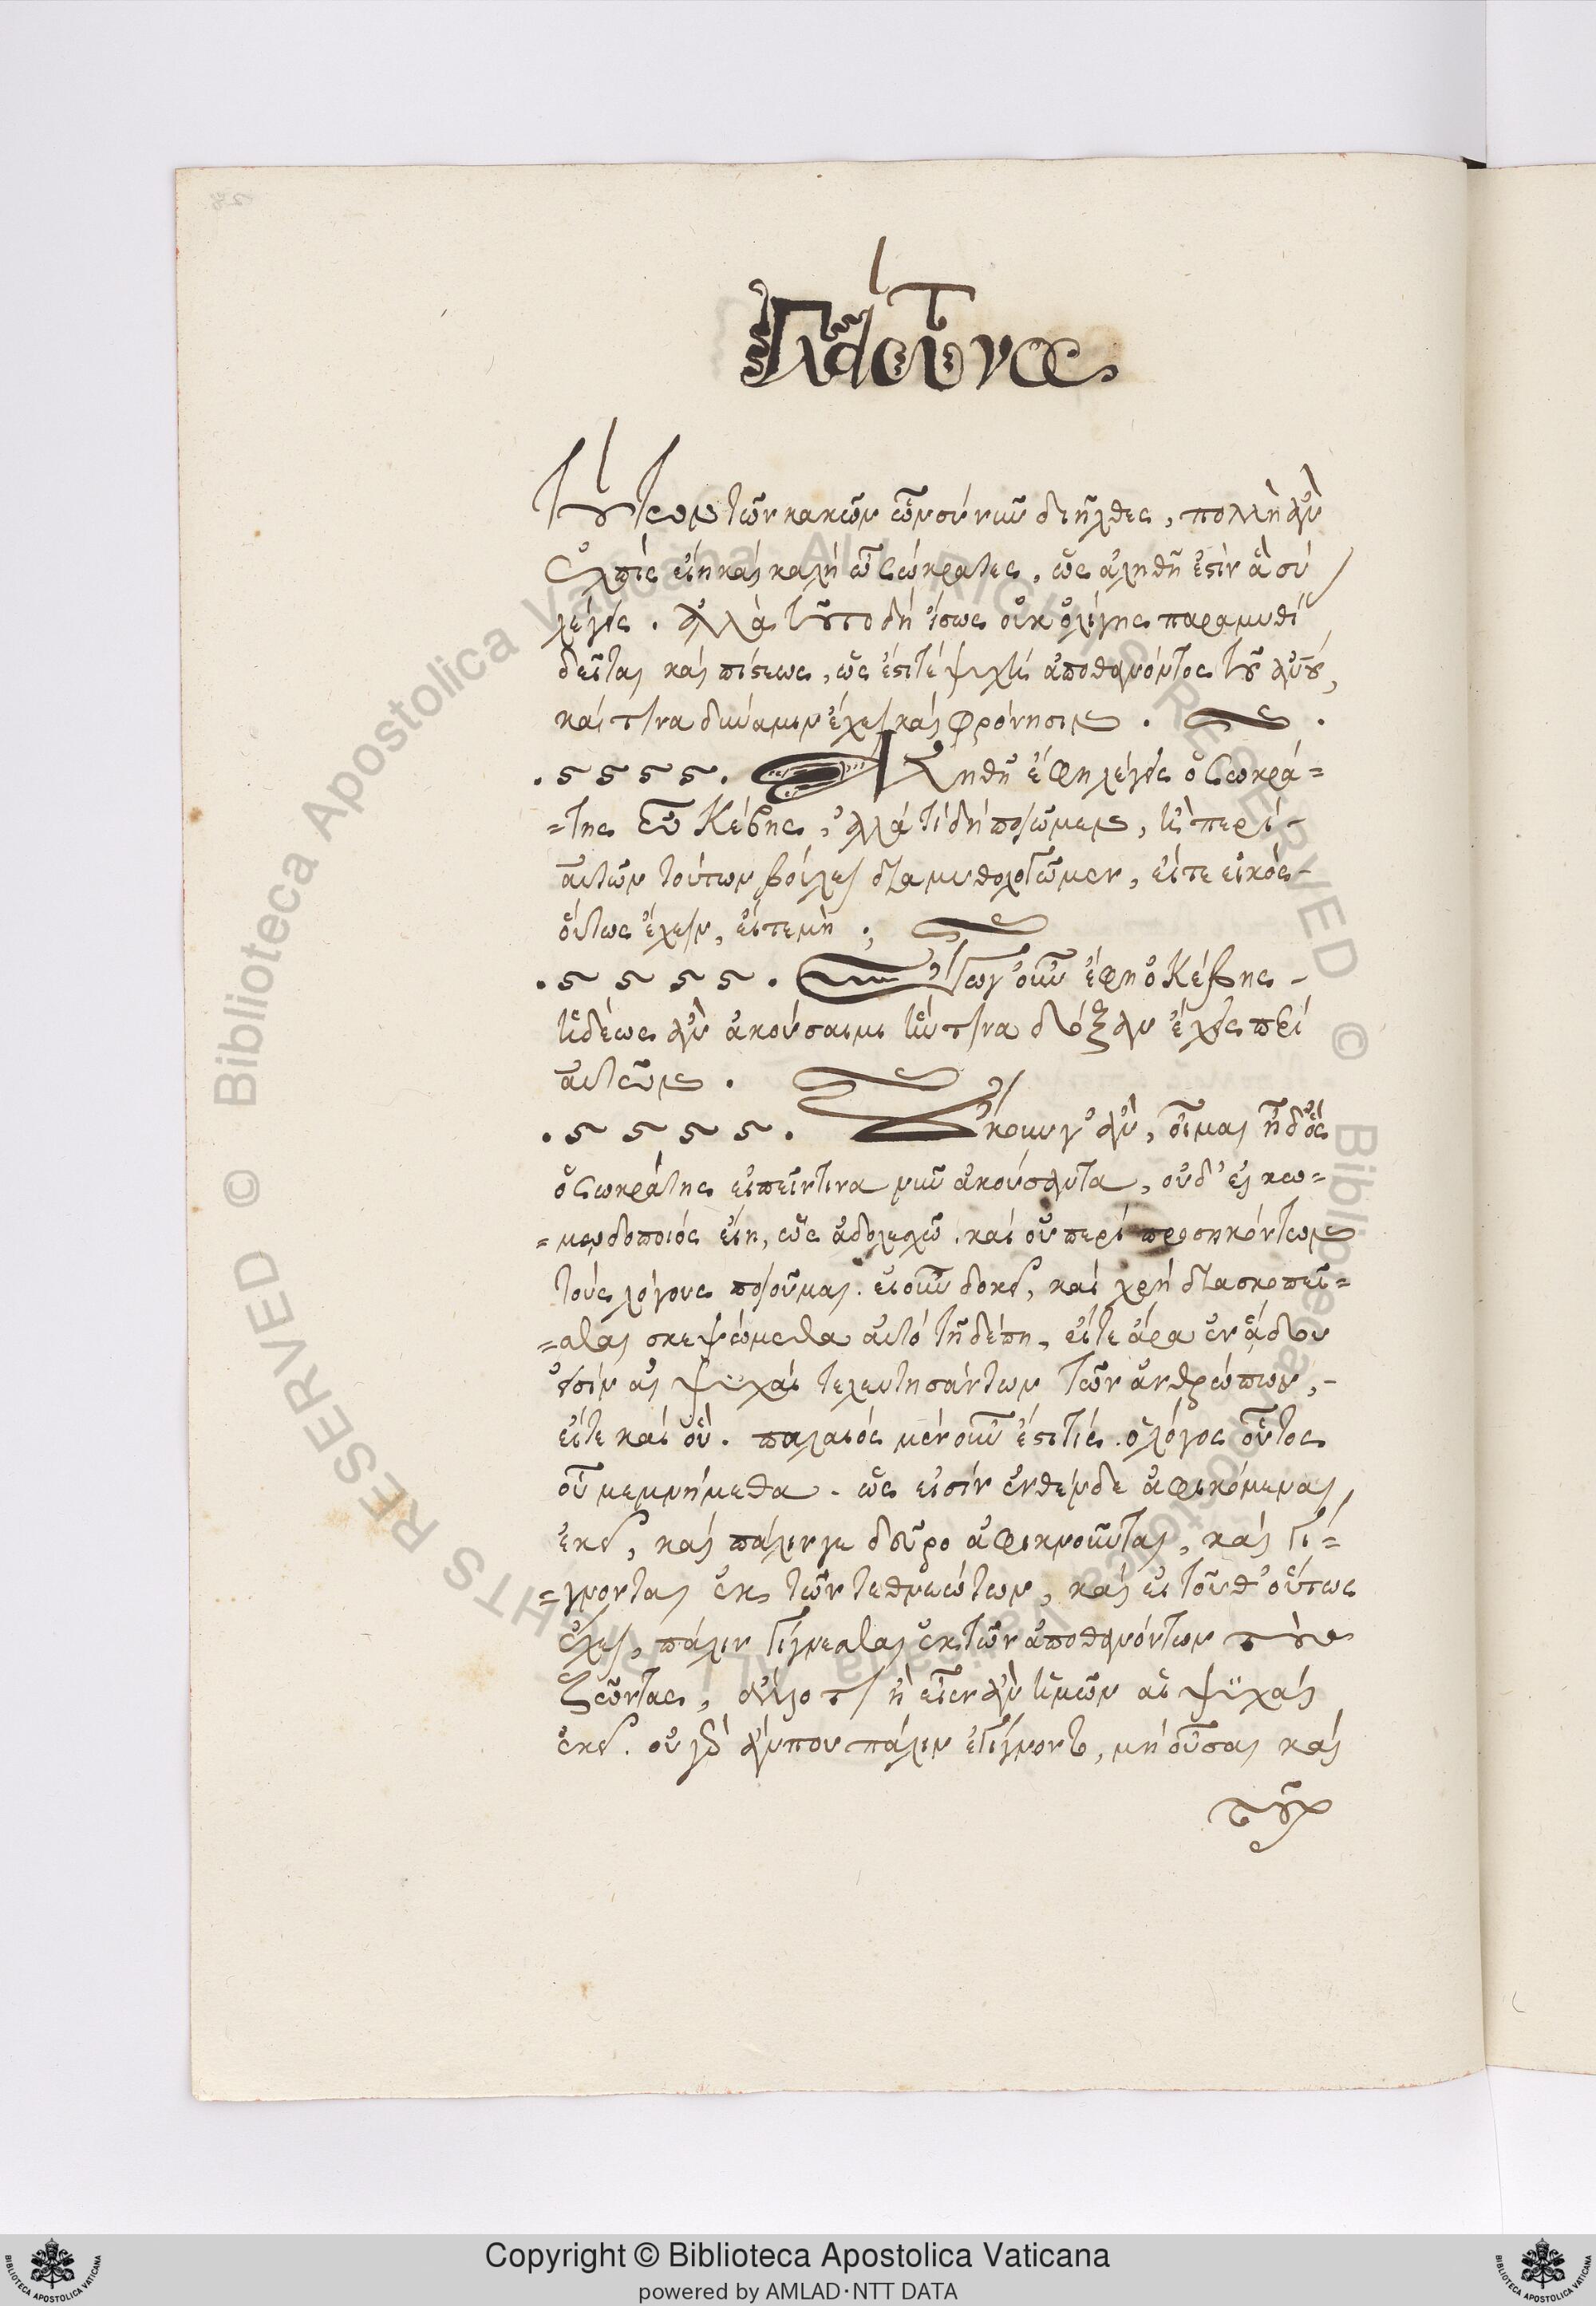 Πλάτωνος
τούτων τῶν κακῶν ὧν σὺ νῦν διῆλθες, πολλὴ ἂν
ἐλπὶς εἴη καὶ καλὴ ὦ Σώκρατες, ὡς ἀληθῆ ἐστιν ἃ σύ
λέγεις. ἀλλὰ τοῦτο δὴ ἴσως οὐκ ὀλίγης παραμυθί
δεῖται καὶ πίστεως, ὡς ἔστι τε ψυχὴ ἀποθανόντος τοῦ ἀνου,
καί τινα δύναμιν ἔχει καὶ φρόνησιν.
Ἀληθῆ ἔφη λέγεις ὁ Σωκρά=
=της ὦ Κέβης, ἀλλὰ τί δὴ ποιῶμεν, ἢ περὶ
αὐτῶν τούτων βούλει διαμυθολογῶμεν, εἴτε εἰκὸς
οὕτως ἔχειν, εἴτε μή;
Ἔγωγ' οὖν ἔφη ὁ Κέβης
ἡδέως ἂν ἀκούσαιμι ἥντινα δόξαν ἔχεις περί
αὐτῶν.
Οὔκουν γ' ἄν, οἶμαι ἦ δ' ὃς
ὁ Σωκράτης εἰπεῖν τινα νῦν ἀκούσαντα, οὐδ' εἰ κω=
=μῳδοποιός εἴη, ὡς ἀδολεσχῶ. καὶ οὐ περὶ προσηκόντων
τοὺς λόγους ποιοῦμαι. εἰ οὖν δοκεῖ, καὶ χρή διασκοπεῖ=
=σθαι σκεψώμεθα αὐτό τῇδέ πη, εἴτε ἄρα ἐν ἅδου
εἰσὶν αἱ ψυχαὶ τελευτησάντων τῶν ἀνθρώπων,
εἴτε καὶ οὔ. παλαιός μὲν οὖν ἔστι τίς ὁ λόγος οὗτος
οὗ μεμνήμεθα. ὡς εἰσὶν ἐνθένδε ἀφικόμεναι
ἐκεῖ, καὶ πάλιν γε δεῦρο ἀφικνοῦνται, καὶ γί=
=γνονται ἐκ τῶν τεθνεώτων, καὶ εἰ τοῦθ' οὕτως
ἔχει, πάλιν γίγνεσθαι ἐκ τῶν ἀποθανόντων τοὺς
ζῶντας, ἄλλο τι ἢ εἶεν ἂν ἡμῶν αἱ ψυχαὶ
ἐκεῖ. οὐ γὰρ ἄν που πάλιν ἐγίγνοντο, μὴ οὖσαι καὶ
Copyright © Biblioteca Apostolica Vaticana
powered by AMLAD·NTT DATA
© Biblioteca Apostolica Vaticana ALL RIGHTS RESERVED
© Biblioteca Apostolica Vaticana ALL RIGHTS RESERVED